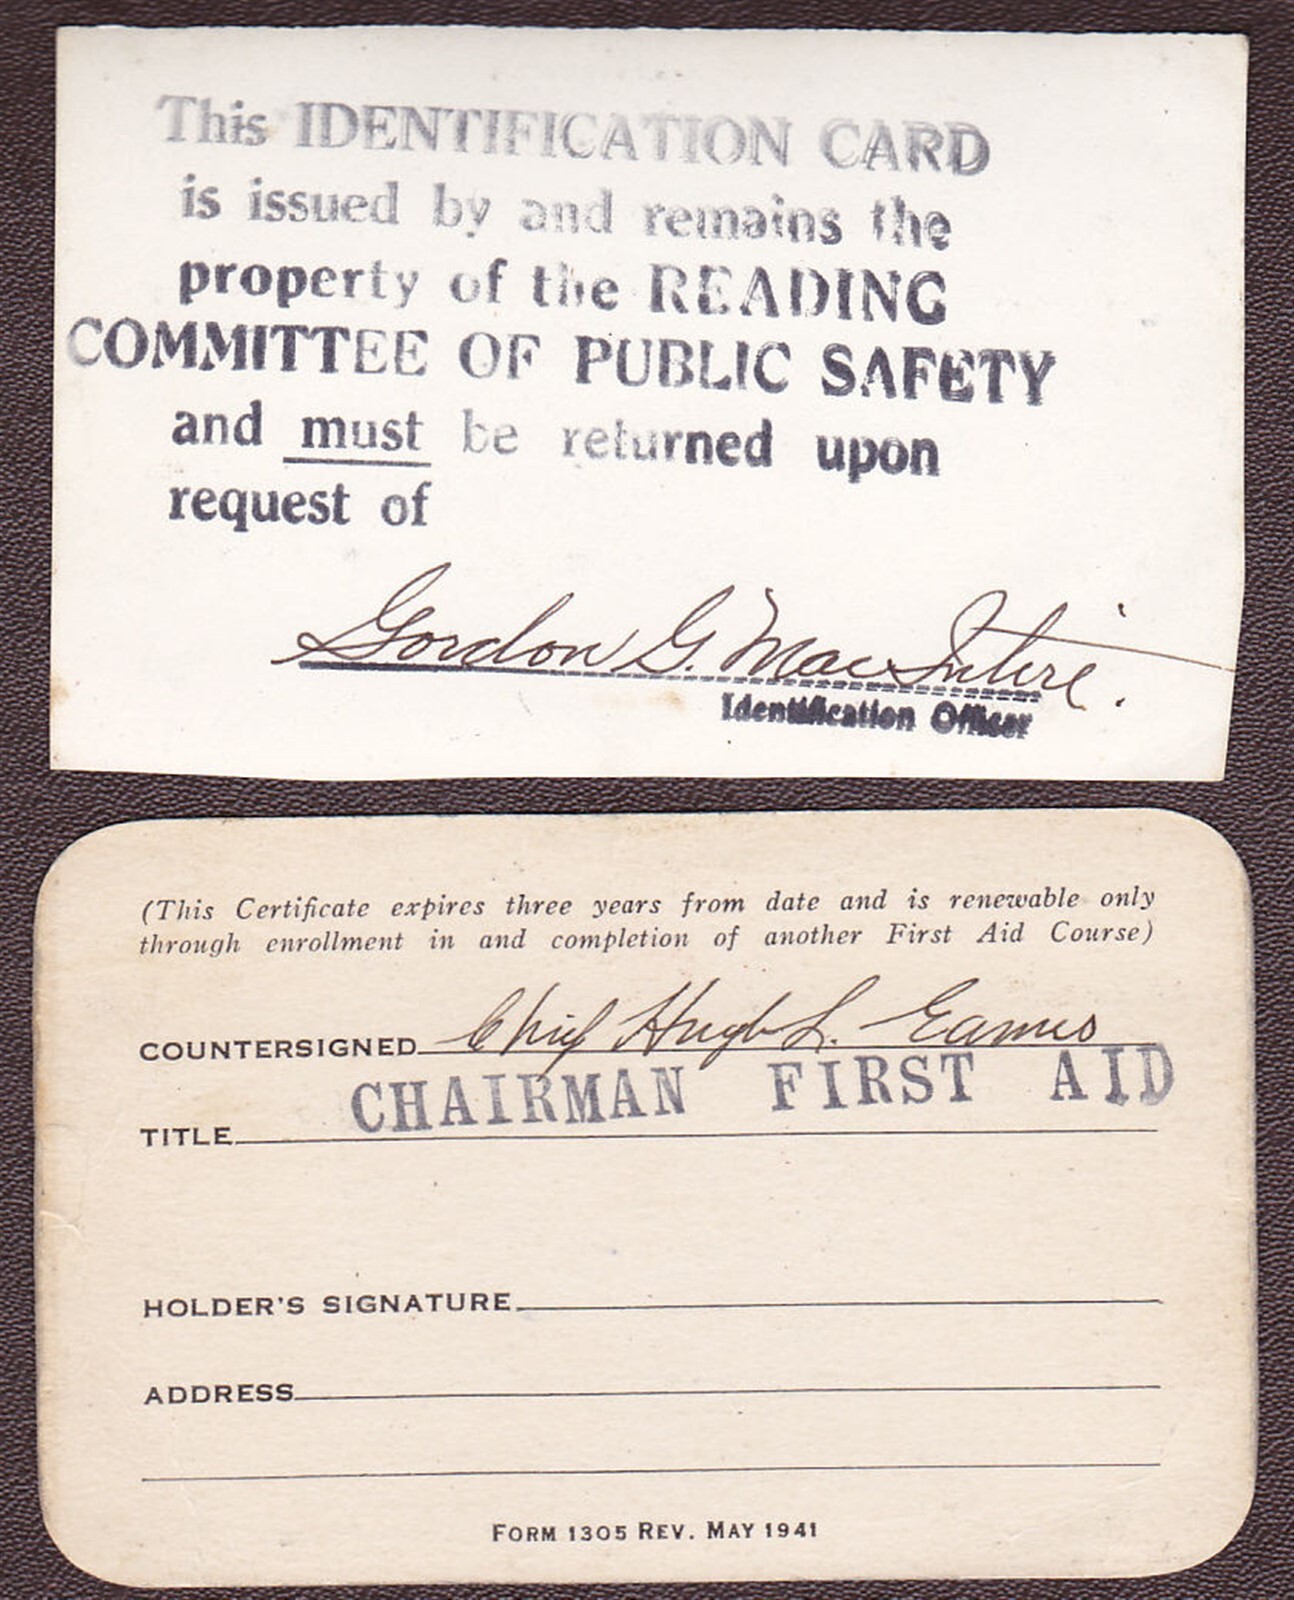 This IDENTIFICATION CARD
is issued by and remains the
property of the READING
COMMITTEE OF PUBLIC SAFETY
and must be returned upon
request of
Gordon G. MacIntire.
Identification Officer
(This Certificate expires three years from date and is renewable only
through enrollment in and completion of another First Aid Course)
COUNTERSIGNED Chief Hugh L. Eames
TITLE CHAIRMAN FIRST AID
HOLDER'S SIGNATURE
ADDRESS
FORM 1305 REV. MAY 1941